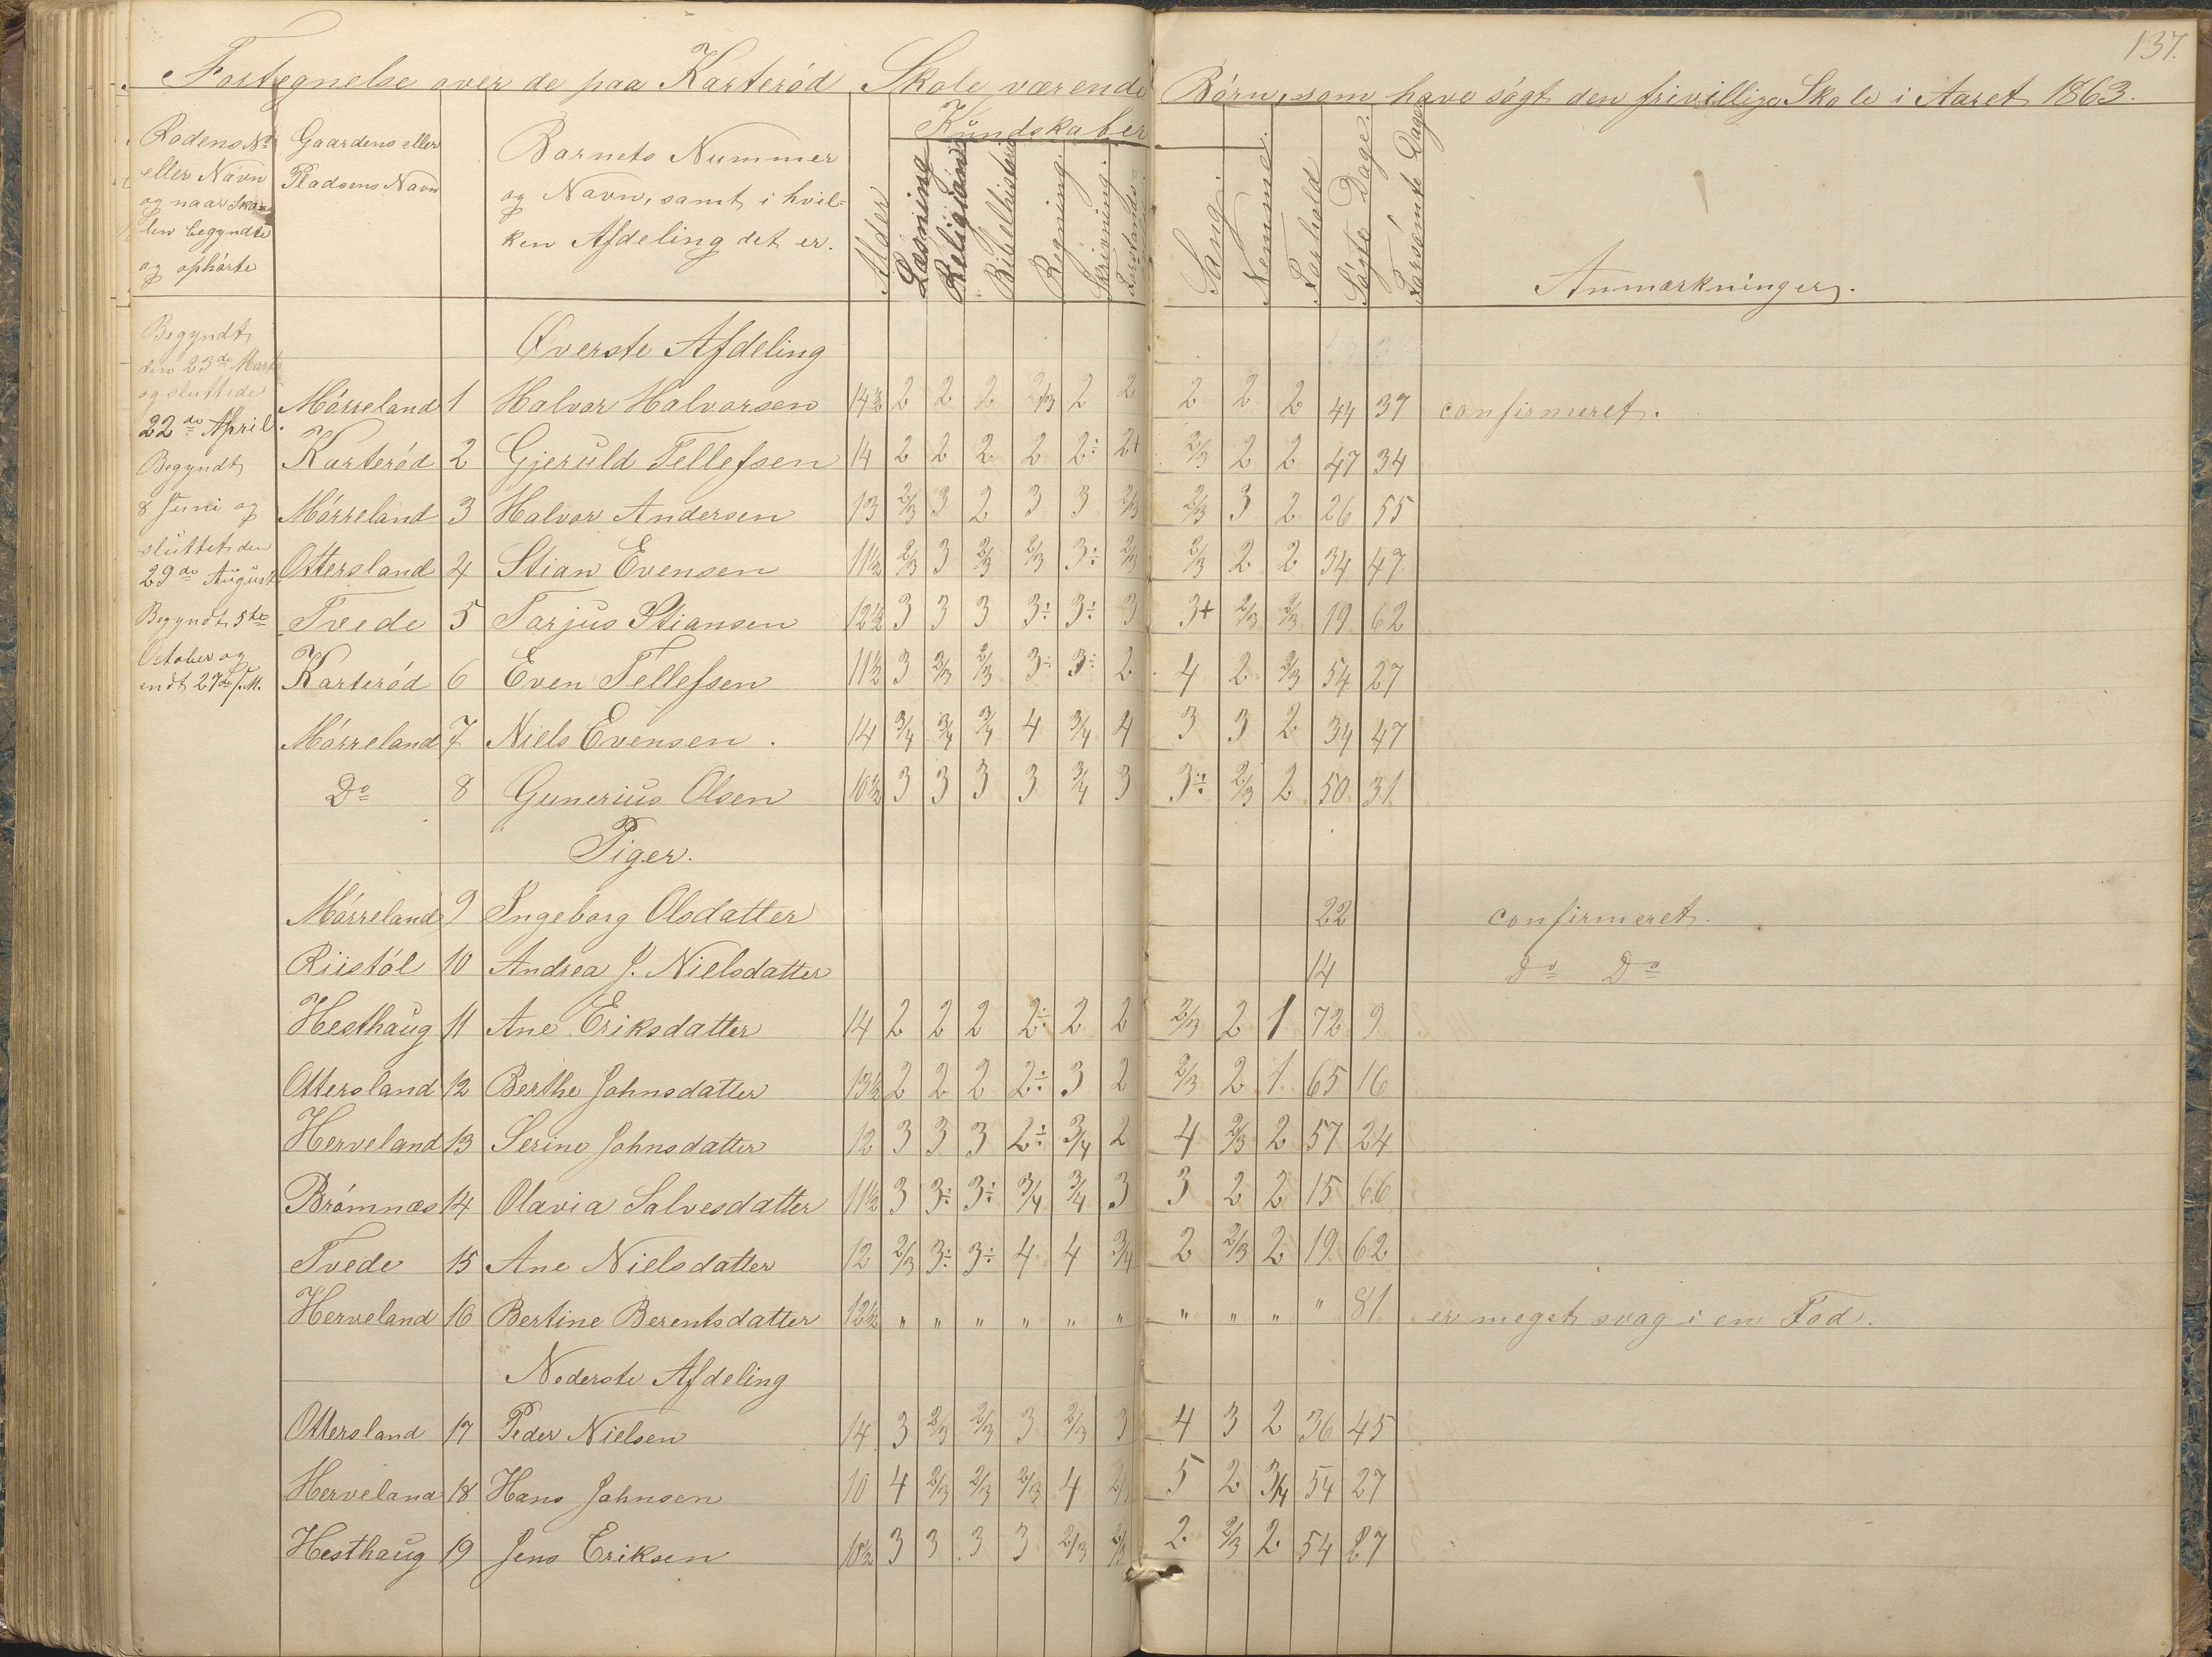 137.
Fortegnelse over de paa Karterød Skole værende Børn, som have søgt den frivillige Skole i Aaret 1863.
Rodens No
eller Navn
og naar Sko=
len begyndte
og ophørte
Gaardens eller
Pladsens Navn
Barnets Nummer
og Navn, samt i hvil=
ken Afdeling det er.
Alder
Kundskaber
Læsning
Religion
Bibelhistorie
Regning.
Skrivning.
Sang.
Nemme.
Forhold
Søgte Dage.
Forsømte Dage
Anmærkninger.
Begyndt
den 23de Marts
og sluttede
22de April.
Begyndt
8 Juni og
sluttet den
29de August
Begyndt 5te
October og
endt 27de f. M.
Øverste Afdeling
Mörreland 1 Halvor Halvorsen 14½ 2 2 2 2/3 2 2 2 2 2 44 37 confirmeret.
Karteród 2 Gjeruld Tellefsen 14 2 2 2 2 2÷ 2+ 2/3 2 2 47 34
Mörreland 3 Halvor Andersen 13 2/3 3 2 3 3 2/3 2/3 3 2 26 55
Ottersland 4 Stian Evensen 11½ 2/3 3 2/3 2/3 3÷ 2/3 2/3 2 2 34 47
Tvede 5 Tarjus Stiansen 12½ 3 3 3 3÷ 3÷ 3 3+ 2/3 2/3 19 62
Karteród 6 Even Tellefsen 11½ 3 2/3 2/3 3÷ 3÷ 2 4 2 2/3 54 27
Mörreland 7 Niels Evensen. 14 3/4 3/4 3/4 4 3/4 4 3 3 2 34 47
Do 8 Gunerius Olsen 10½ 3 3 3 3 3/4 3 3÷ 2/3 2 50 31
Piger.
Mörreland 9 Ingeborg Olsdatter 22 confirmeret.
Riistól 10 Andrea J. Nielsdatter 14 Do Do
Hesthaug 11 Ane Eriksdatter 14 2 2 2 2÷ 2 2 2/3 2 1 72 9
Ottersland 12 Berthe Johnsdatter 13½ 2 2 2 2÷ 3 2 2/3 2 1 65 16
Herveland 13 Serine Johnsdatter 12 3 3 3 2÷ 3/4 2 4 2/3 2 57 24
Brómnæs 14 Olavia Salvesdatter 11½ 3 3÷ 3÷ 3/4 3/4 3 3 2 2 15 66
Tvede 15 Ane Nielsdatter 12 2/3 3÷ 3÷ 4 4 3/4 2 2/3 2 19 62
Herveland 16 Bertine Berentsdatter 12½ " " " " " " " " " " 81 er meget svag i en Fod.
Nederste Afdeling
Ottersland 17 Peder Nielsen 14 3 2/3 2/3 3 2/3 3 4 3 2 36 45
Herveland 18 Hans Johnsen 10 4 2/3 2/3 2/3 4 2/3 5 2 3/4 54 27
Hesthaug 19 Jens Eriksen 10½ 3 3 3 3 2/3 2/3 2 2/3 2 54 27